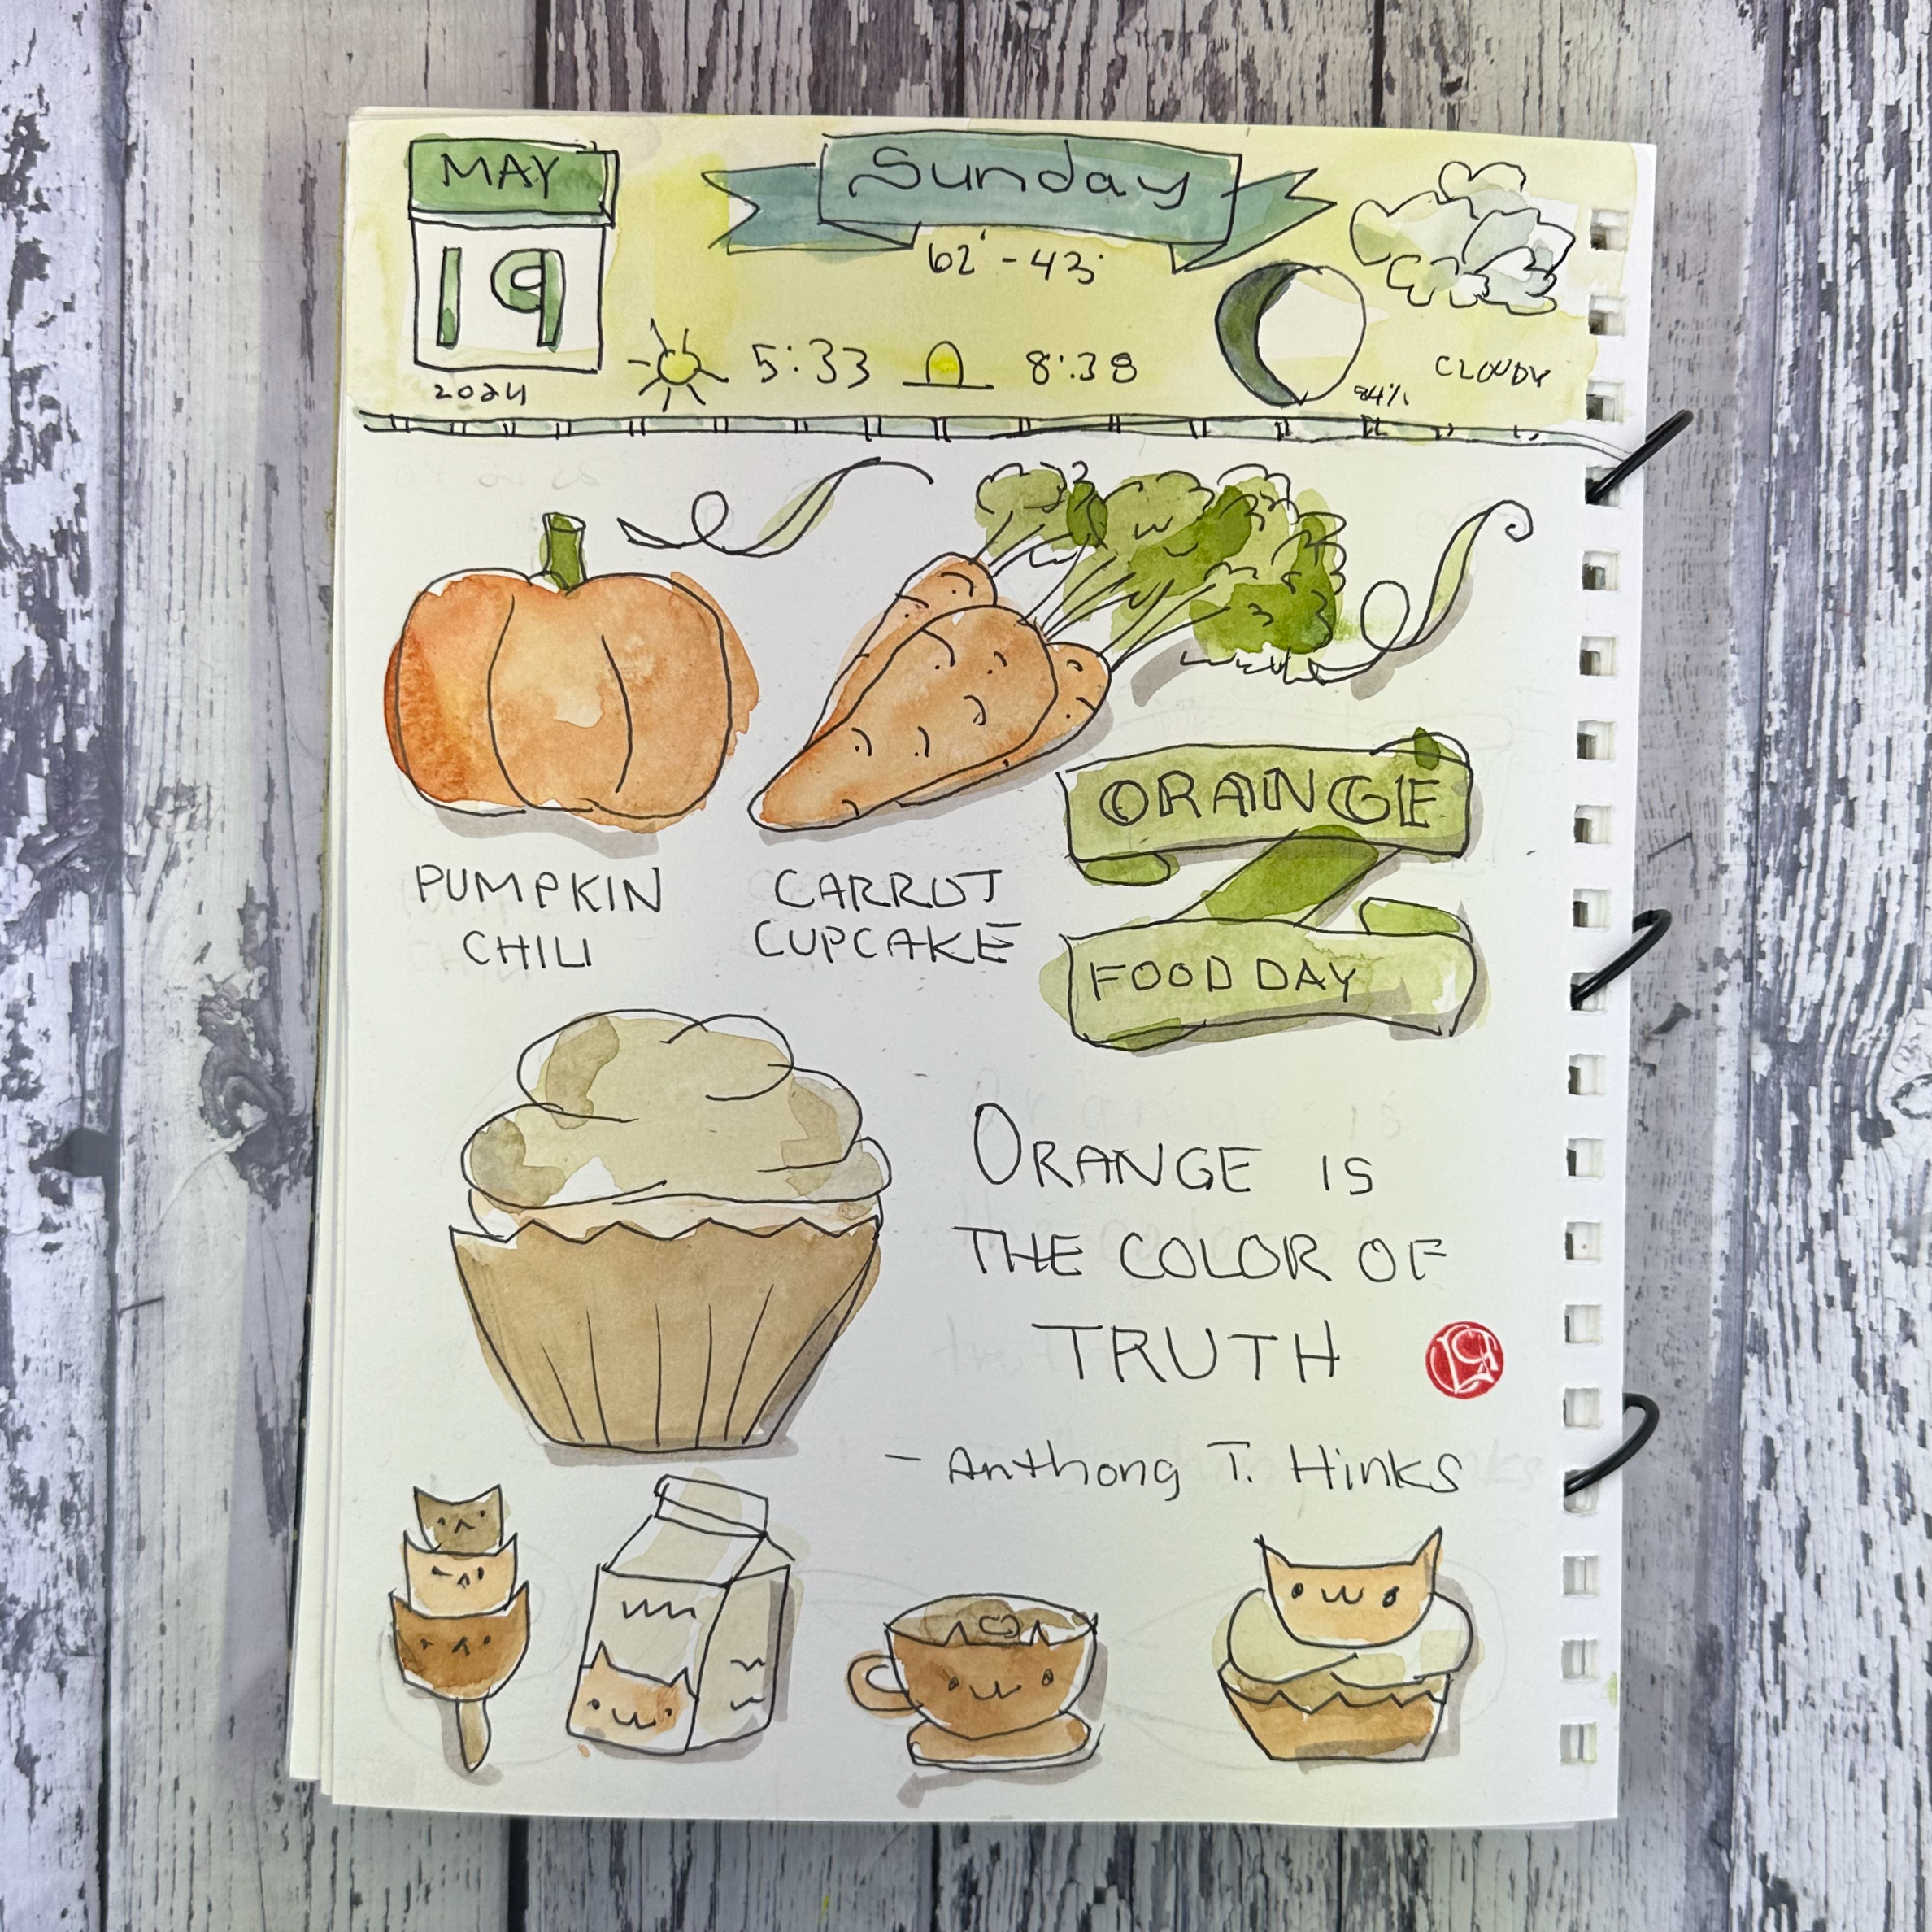 MAY
19
2024
Sunday
62° - 43°
5:33 8:38
84%
CLOUDY
ORANGE
FOOD DAY
PUMPKIN
CHILI
CARROT
CUPCAKE
ORANGE IS
THE COLOR OF
TRUTH
- Anthony T. Hinks